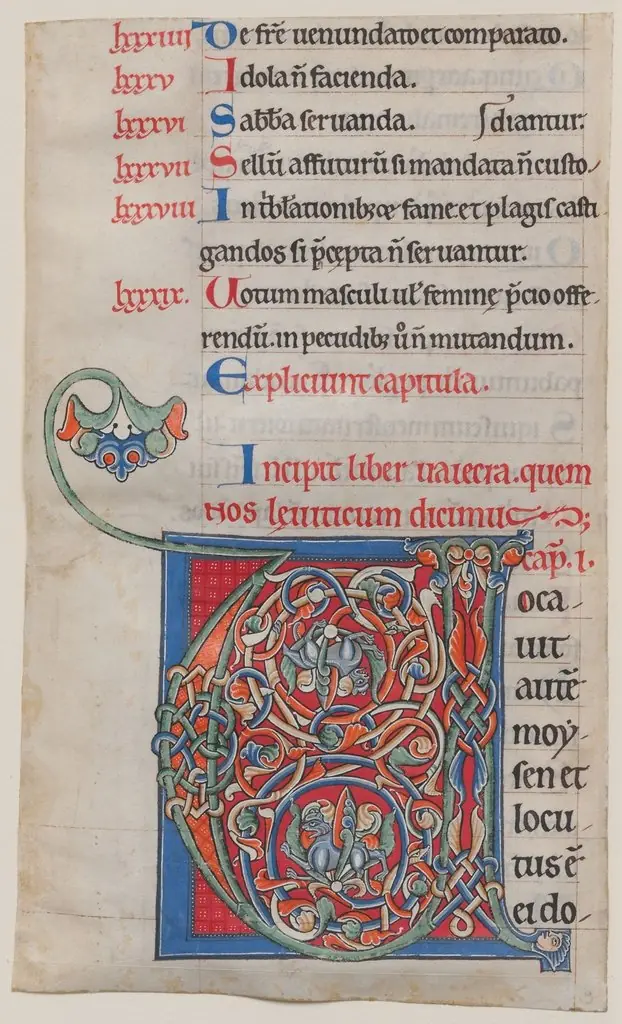 lxxxiiij De fr̄e uenundato et comparato.
lxxxv Idola n̄ facienda.
lxxxvi Sabb̄a seruanda. diantur.
lxxxvii Sellū affuturū si mandata n̄ custo-
lxxxviii In t̄bl̄ationibꝫ fame et plagis casti
gandos si p̄cępta n̄ seruantur.
lxxxix. Uotum masculi ul̄ feminę p̄cio offe-
rendū. in pecudibꝫ ů n̄ mutandum.
Expliciunt capitula.
Incipit liber uaiecra. quem
nos leuiticum dicimus;
cap̄. i.
Voca-
uit
autē
moẏ-
sen et
locu-
tus ē
ei do-